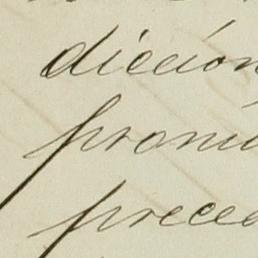 dicción
pronu
preced